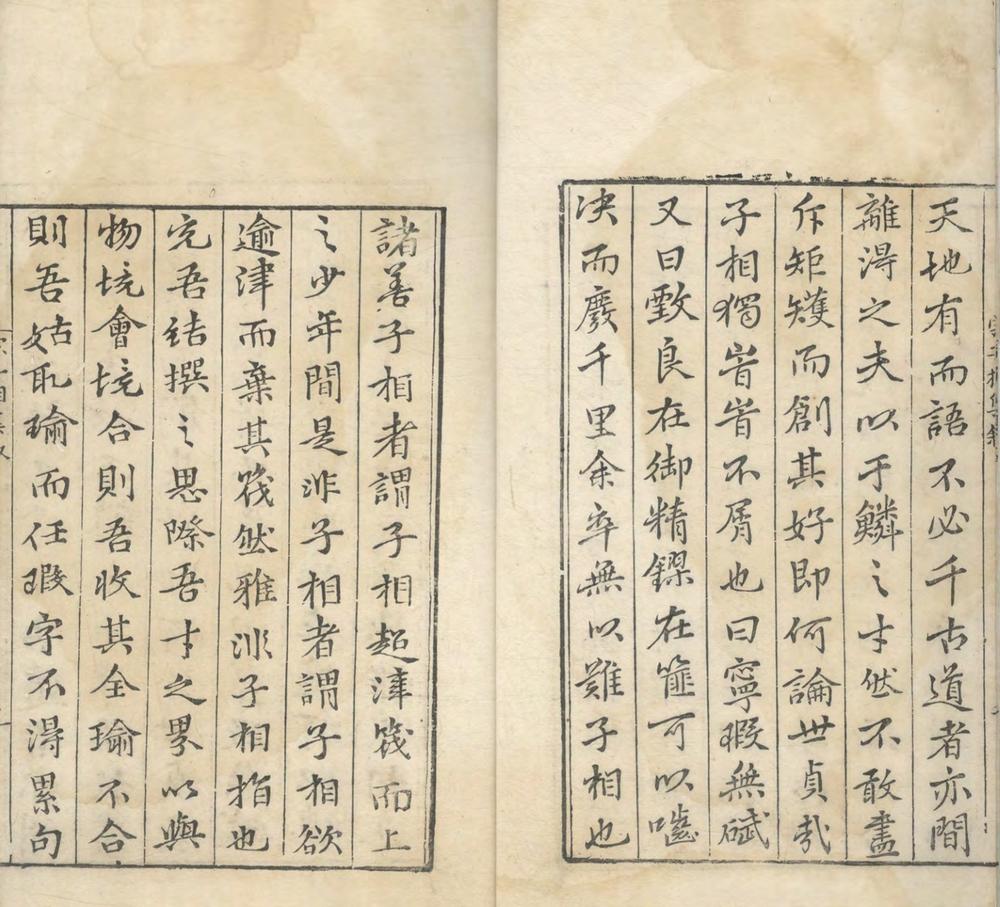 天地有而語不必千古道者亦間
離得之夫以于鱗之才然不敢盡
斥矩矱而創其好即何論世貞哉
子相獨訾訾不屑也曰寧瑕無碔
又曰良在御精鏐在篚可以嚙
决而廢千里余卒無以難子相也
諸善子相者謂子相超津筏而上
之少年間是非子相者謂子相欲
逾津而棄其筏然雅非子相指也
充吾結撰之思際吾才之界以與
物境會境合則吾收其全瑜不合
則吾姑取瑜而任瑕字不得累句